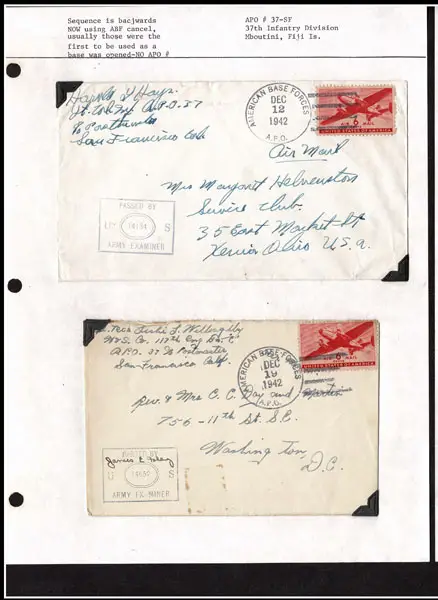 Sequence is bacjwards
NOW using ABF cancel,
usually those were the
first to be used as a
base was opened-NO APO #
APO # 37-SF
37th Infantry Division
Mboutini, Fiji Is.
A.P.O. 37
San Francisco Calif
AMERICAN BASE FORCES
DEC
12
1942
A.P.O.
AIR 6 MAIL
UNITED STATES OF AMERICA
Air Mail
Mrs Margaret Helvenston
Service Club.
35 East Market St
Xenia Ohio U.S.a.
PASSED BY
U S
ARMY EXAMINER
Leslie L. Willoughby
Co. 117th Eng
A.P.O. 37 Postmaster
San Francisco Calif.
AMERICAN BASE FORCES
DEC
19
1942
A.P.O.
AIR 6 MAIL
UNITED STATES OF AMERICA
Rev. & Mrs C. C. Day and
756-11th St. S.E.
Washington,
D.C.
PASSED BY
James E.
U S
ARMY EXAMINER